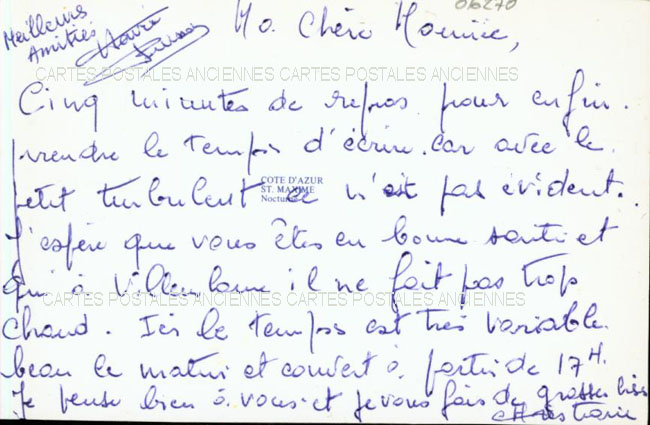 06270
Meilleurs
Amitiés
Ma Chère Mounie,
CARTES POSTALES ANCIENNES CARTES POSTALES ANCIENNES
Cinq minutes de repos pour enfin
prendre le temps d'écrire car avec le
petit turbulent ce n'est pas évident.
COTE D'AZUR
ST. MAXIME
Nocturne
J'espère que vous êtes en bonne santé et
qu'à il ne fait pas trop
CARTES POSTALES ANCIENNES CARTES POSTALES ANCIENNES
chaud. Ici le temps est très variable
beau le matin et couvert à partir de 17H.
Je pense bien à vous et je vous fais de grosses bises